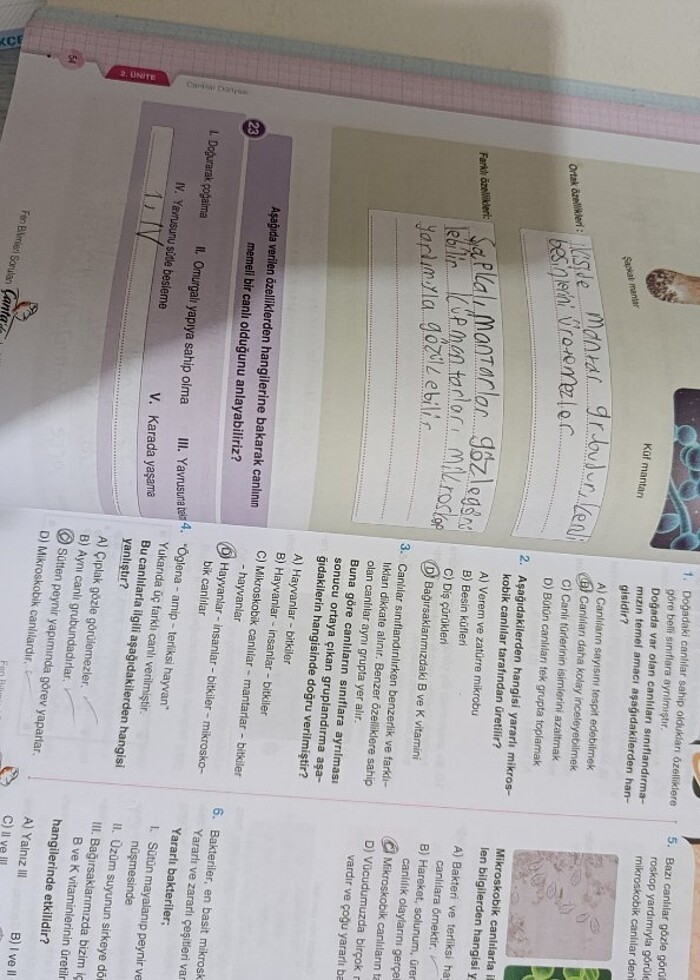 54
2. ÜNİTE
Canlılar Dünyası
Şapkalı mantar
Küf mantarı
Ortak özellikleri :
ikside mantar grubudur, kendi
besinlerini üretemezler
Farklı özellikleri:
Şapkalı mantarlar gözle görü
lebilir küf mantarları mikroskop
yardımıyla görülebilir
23
Aşağıda verilen özelliklerden hangilerine bakarak canlının
memeli bir canlı olduğunu anlayabiliriz?
I. Doğurarak çoğalma
II. Omurgalı yapıya sahip olma
III. Yavrusuna
IV. Yavrusunu sütle besleme
V. Karada yaşama
1, IV
Fen Bilimleri Soruları
1. Doğadaki canlılar sahip oldukları özelliklere
göre belli sınıflara ayrılmıştır.
Doğada var olan canlıları sınıflandırma-
mızın temel amacı aşağıdakilerden han-
gisidir?
A) Canlıların sayısını tespit edebilmek
B) Canlıları daha kolay inceleyebilmek
C) Canlı türlerinin isimlerini azaltmak
D) Bütün canlıları tek grupta toplamak
2. Aşağıdakilerden hangisi yararlı mikros-
kobik canlılar tarafından üretilir?
A) Verem ve zatürre mikrobu
B) Besin küfleri
C) Diş çürükleri
D) Bağırsaklarımızdaki B ve K vitamini
3. Canlılar sınıflandırılırken benzerlik ve farklı-
lıkları dikkate alınır. Benzer özelliklere sahip
olan canlılar aynı grupta yer alır.
Buna göre canlıların sınıflara ayrılması
sonucu ortaya çıkan gruplandırma aşa-
ğıdakilerin hangisinde doğru verilmiştir?
A) Hayvanlar - bitkiler
B) Hayvanlar - insanlar - bitkiler
C) Mikroskobik canlılar - mantarlar - bitkiler
- hayvanlar
D) Hayvanlar - insanlar - bitkiler - mikrosko-
bik canlılar
4. "Öglena - amip - terliksi hayvan"
Yukarıda üç farklı canlı verilmiştir.
Bu canlılarla ilgili aşağıdakilerden hangisi
yanlıştır?
A) Çıplak gözle görülemezler.
B) Aynı canlı grubundadırlar.
C) Sütten peynir yapımında görev yaparlar.
D) Mikroskobik canlılardır.
5. Bazı canlılar gözle görü
roskop yardımıyla görüle
mikroskobik canlılar den
Mikroskobik canlılarla
len bilgilerden hangisi y
A) Bakteri ve terliksi ha
canlılara örnektir.
B) Hareket, solunum, ürer
canlılık olaylarını gerçe
C) Mikroskobik canlıların
D) Vücudumuzda birçok
vardır ve çoğu yararlı ba
6. Bakteriler, en basit mikrosk
Yararlı ve zararlı çeşitleri var
Yararlı bakteriler;
I. Sütün mayalanıp peynir ve
nüşmesinde
II. Üzüm suyunun sirkeye dö
III. Bağırsaklarımızda bizim iç
B ve K vitaminlerinin üretilm
hangilerinde etkilidir?
A) Yalnız III
B) I ve II
C) II ve III